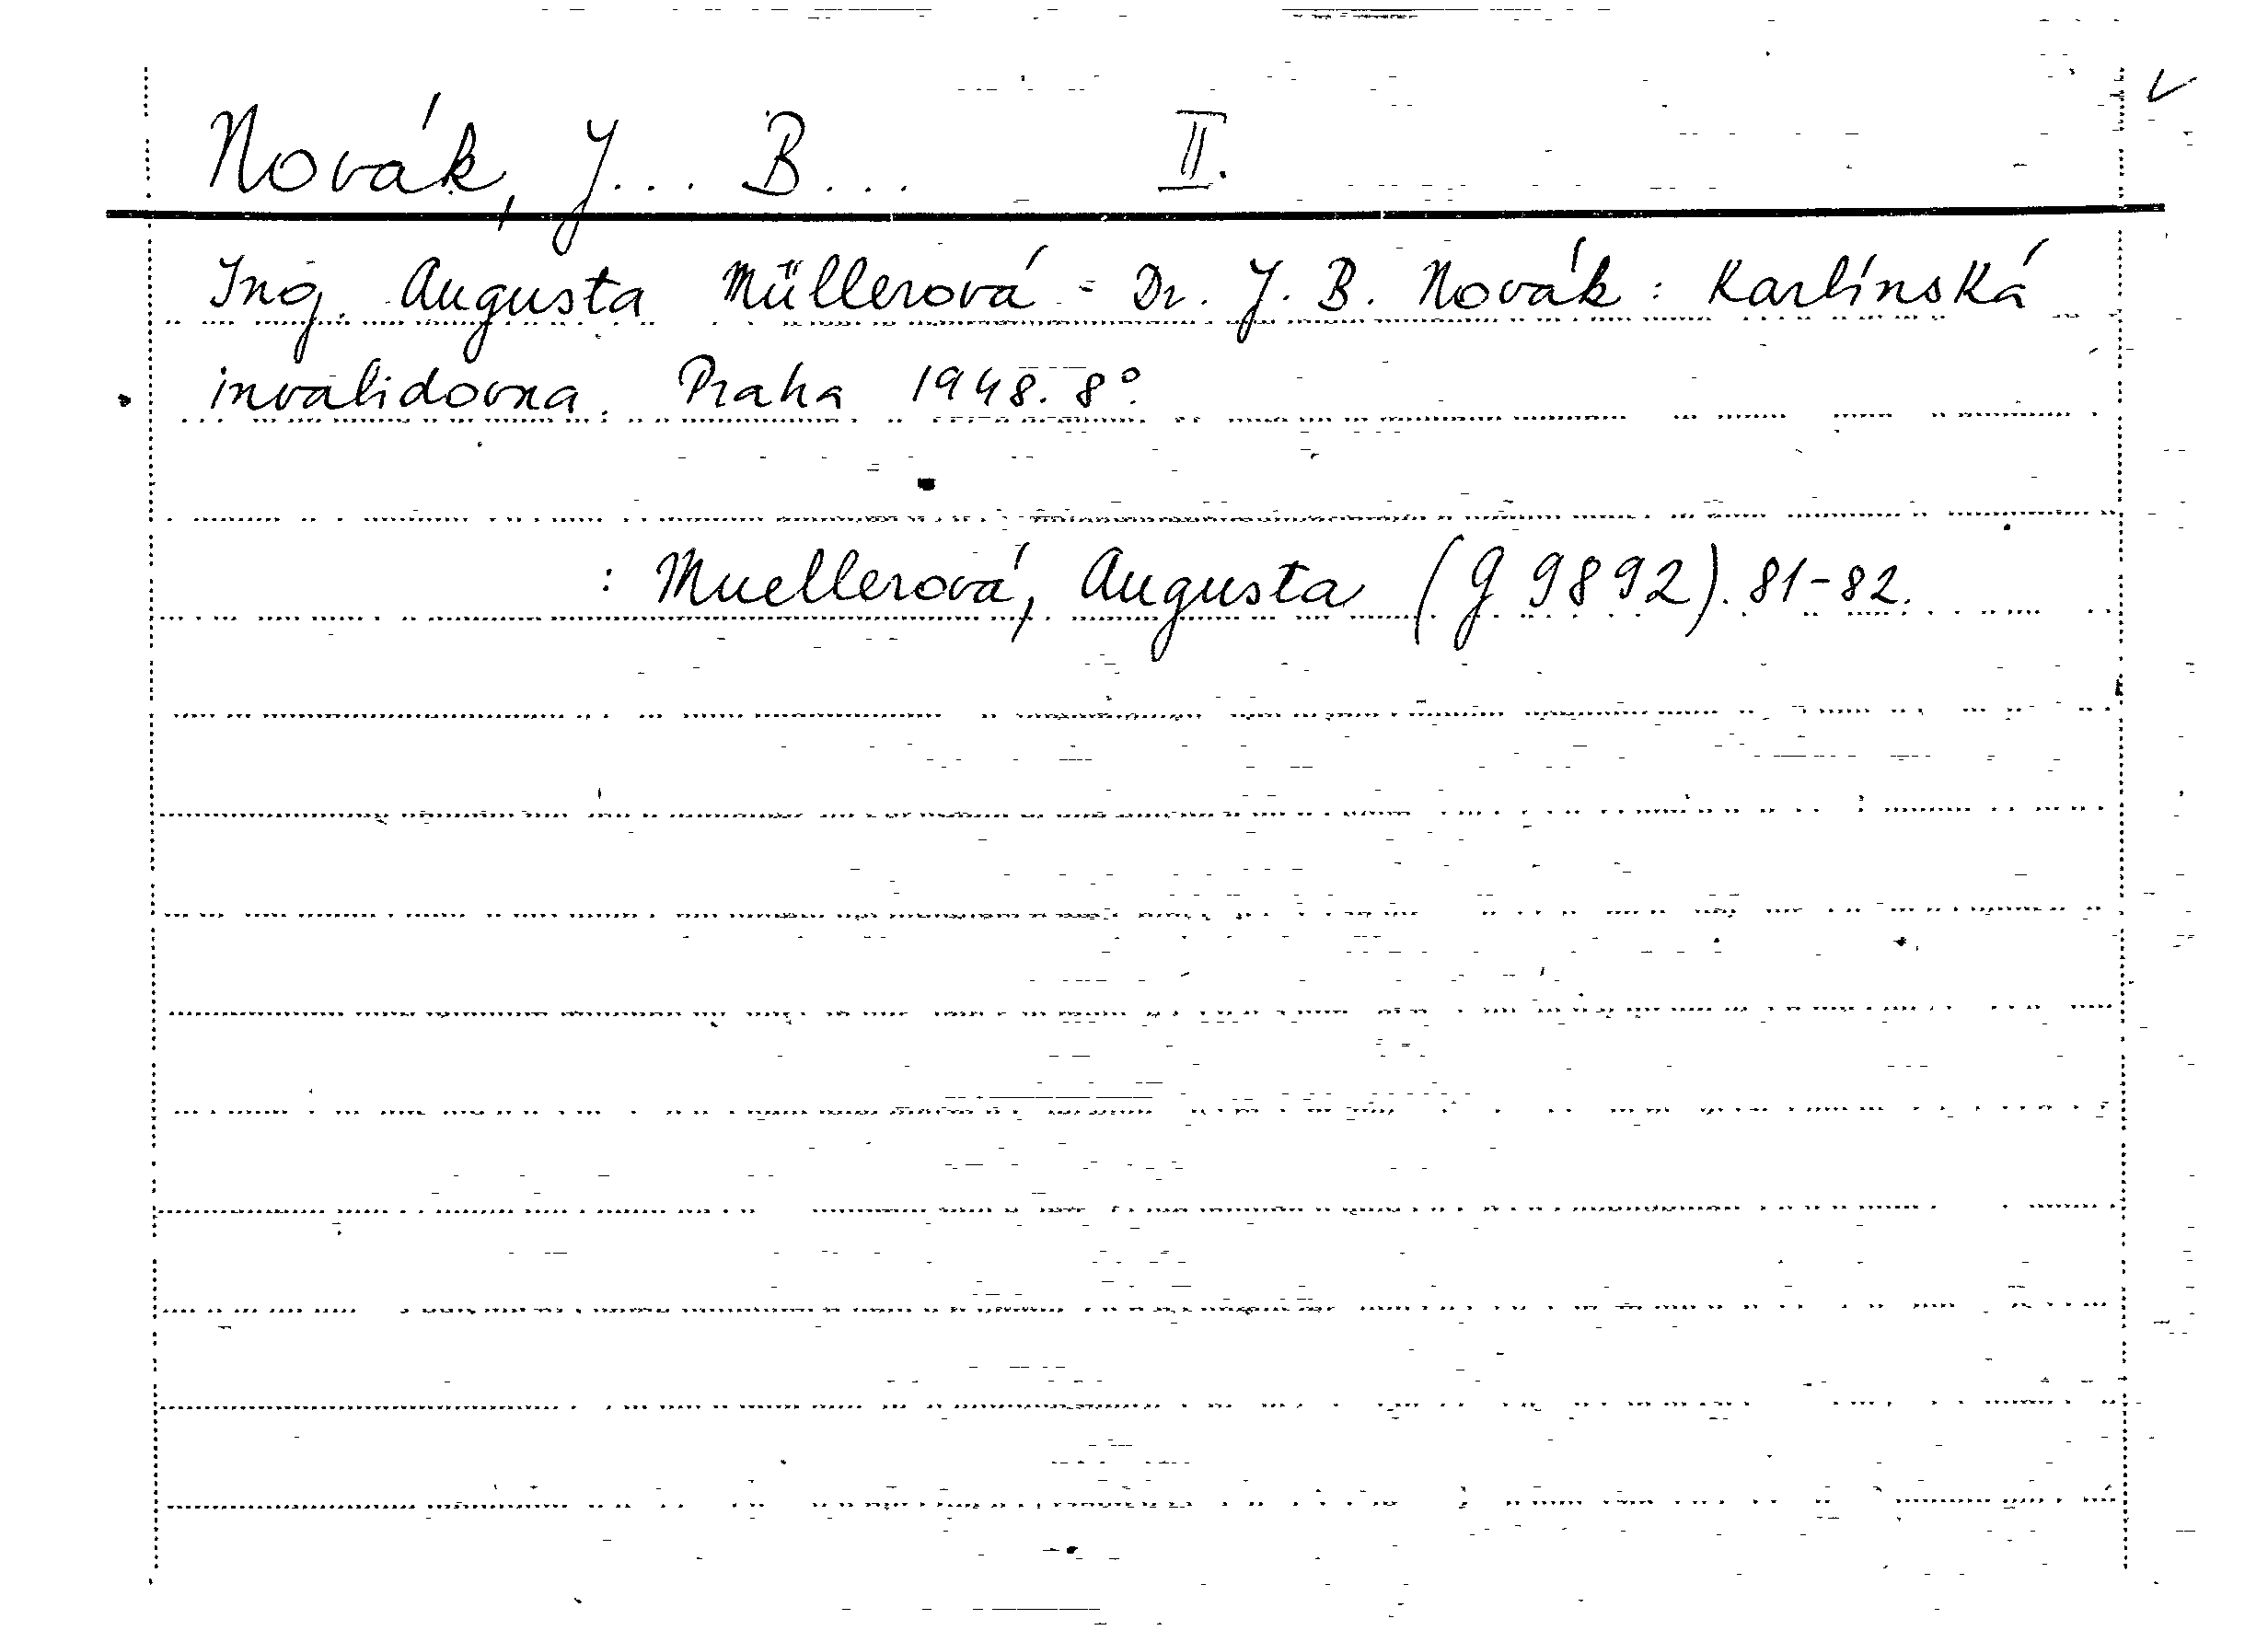 Novák, J... B... II.
Ing. Augusta Müllerová - Dr. J. B. Novák: Karlínská
invalidovna. Praha 1948. 8°.
: Muellerová, Augusta (G 9892). 81-82.